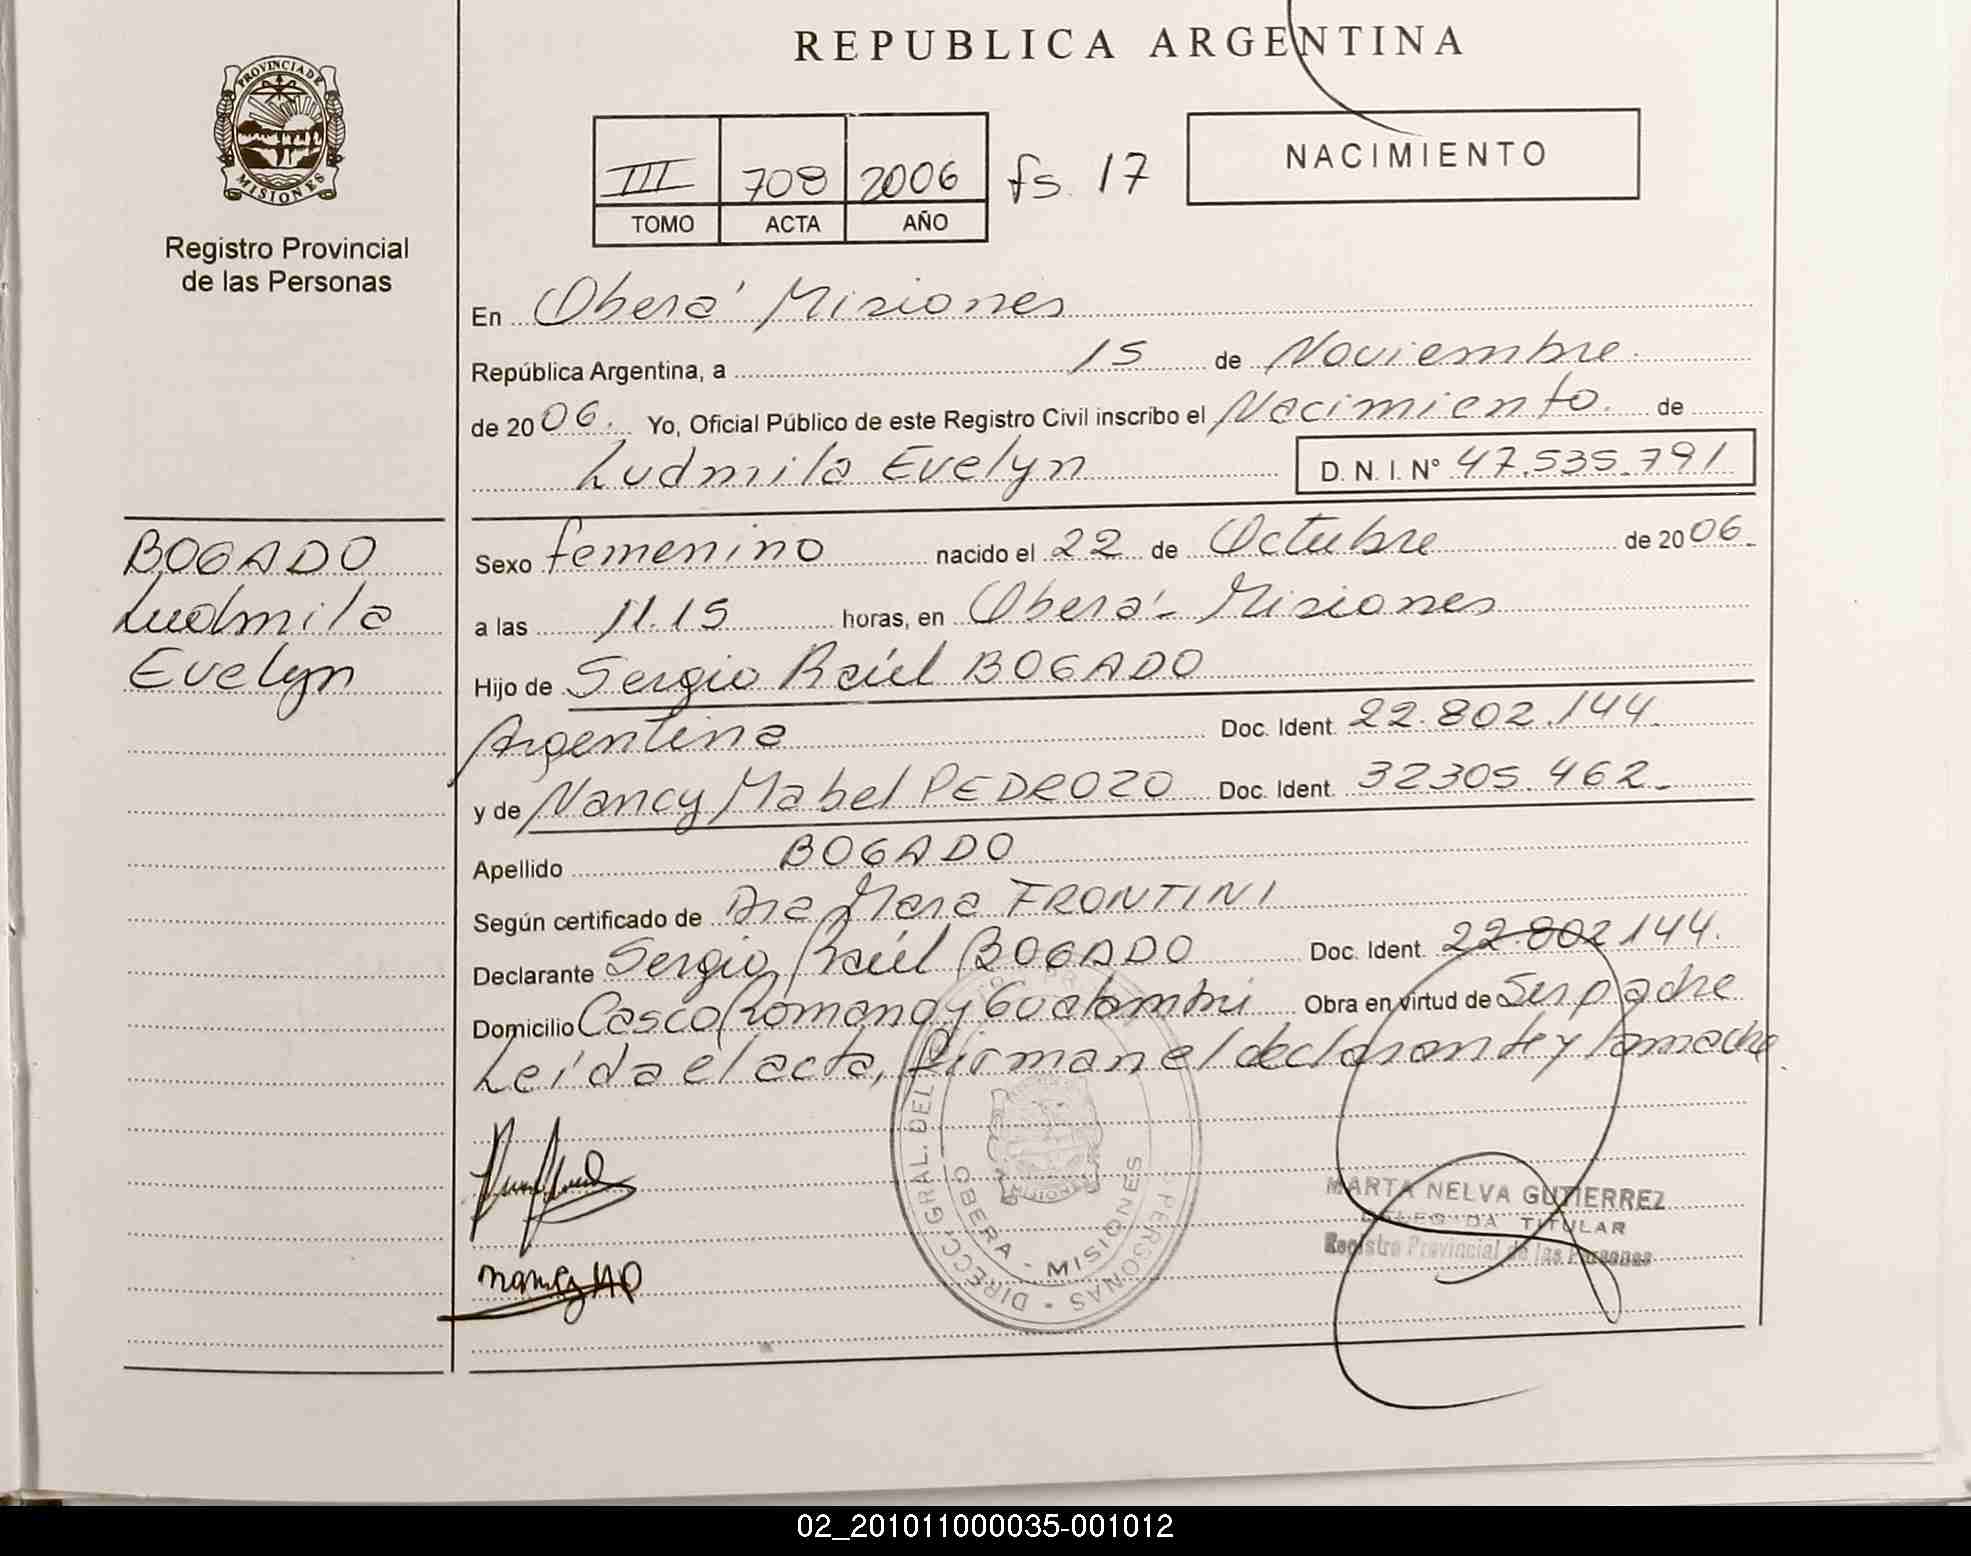 PROVINCIA DE
MISIONES
Registro Provincial
de las Personas
REPUBLICA ARGENTINA
III 708 2006 fs. 17
TOMO ACTA AÑO
NACIMIENTO
En Oberá Misiones
República Argentina, a 15 de Noviembre
de 2006. Yo, Oficial Público de este Registro Civil inscribo el Nacimiento. de
Ludmila Evelyn D. N. I. N° 47.535.791
BOGADO
Ludmila
Evelyn
Sexo femenino nacido el 22 de Octubre de 2006.
a las 11.15 horas, en Oberá - Misiones
Hijo de Sergio Raúl BOGADO
Argentina Doc. Ident. 22.802.144.
y de Nancy Mabel PEDROZO Doc. Ident. 32305.462.-
Apellido BOGADO
Según certificado de Dra Mara FRONTINI
Declarante Sergio Raúl BOGADO Doc. Ident. 22.802144.
Domicilio Casco Romano y Guatambú Obra en virtud de Ser padre
Leída el acta, firman el declarante y la madre.
DIRECC. GRAL. DEL PERSONAS
OBERA - MISIONES
MARTA NELVA GUTIERREZ
DELEGADA TITULAR
Registro Provincial de las Personas
02_201011000035-001012